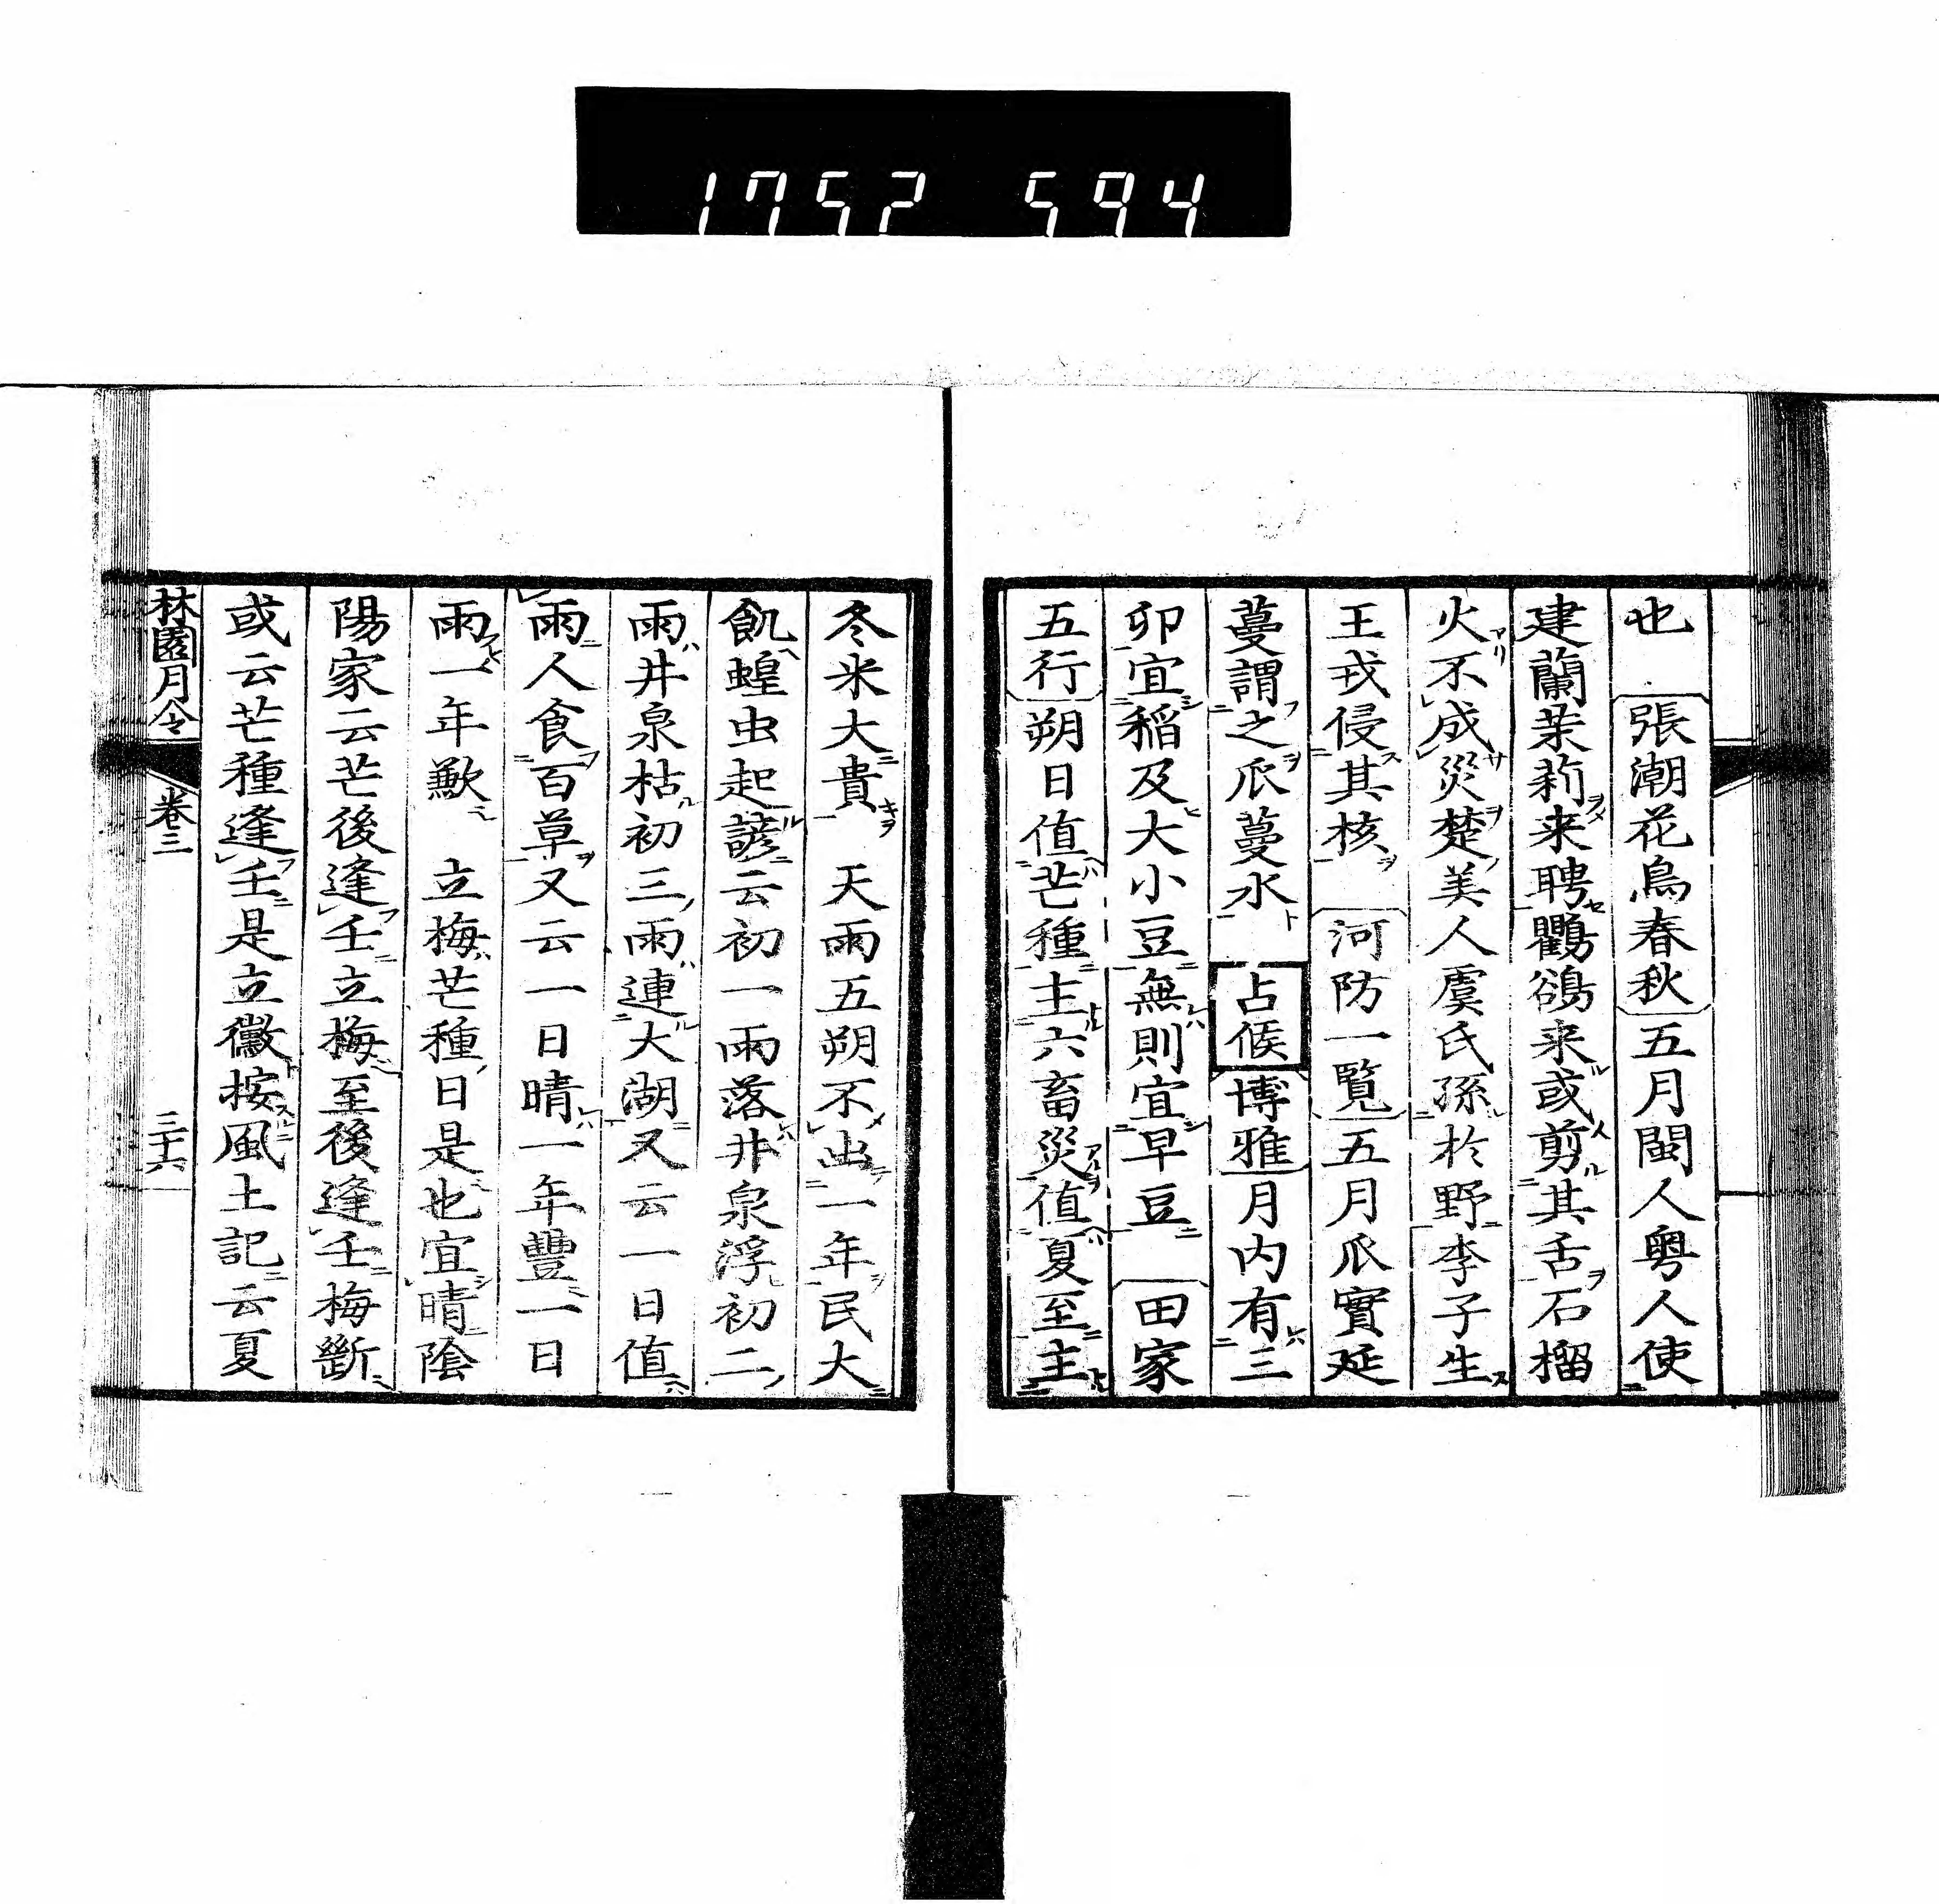 1752 594
也 張潮花鳥春秋 五月閩人粤人使
建蘭茉莉来聘鸜鵒来或剪其舌石榴
火不成災楚美人虞氏孫於野李子生
王戎侵其核 河防一覧 五月瓜實延
蔓謂之瓜蔓水 占候 博雅 月内有三
卯宜稲及大小豆無則宜早豆 田家
五行 朔日值芒種主六畜災值夏至主
冬米大貴 天雨五朔不出一年民大
飢蝗虫起諺云初一雨落井泉浮初二
雨井泉枯初三雨連大湖又云一日值
雨人食百草又云一日晴一年豐一日
雨一年歉 立梅芒種日是也宜晴陰
陽家云芒後逢壬立梅至後逢壬梅斷
或云芒種逢壬是立黴按風土記云夏
林園月令 卷三 三十六